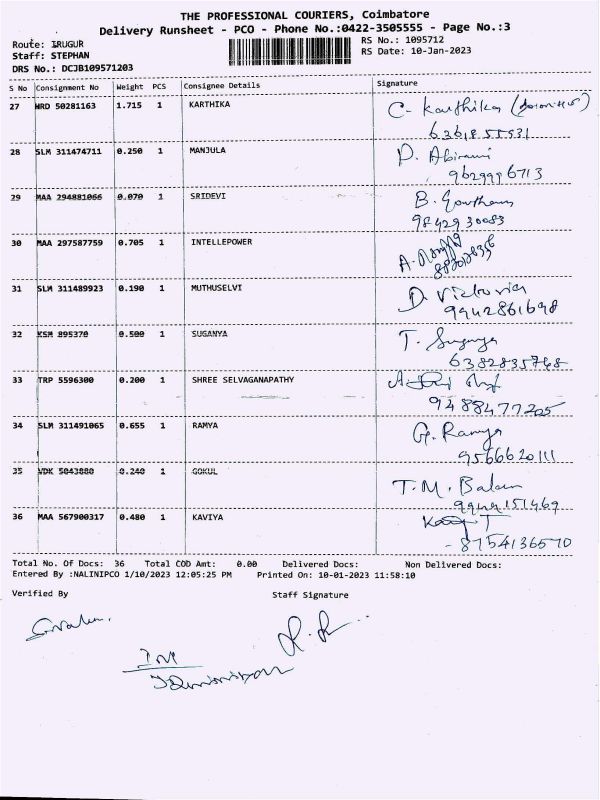 THE PROFESSIONAL COURIERS, Coimbatore
Delivery Runsheet - PCO - Phone No.:0422-3505555 - Page No.:3
Route: IRUGUR
RS No.: 1095712
Staff: STEPHAN
RS Date: 10-Jan-2023
DRS No.: DCJB109571203
S No Consignment No Weight PCS Consignee Details Signature
27 WRD 50281163 1.715 1 KARTHIKA C. Karthika
28 SLM 311474711 0.250 1 MANJULA P. Abirami
9629996713
29 MAA 294881066 0.070 1 SRIDEVI B. Gowtham
9842930083
30 MAA 297587759 0.705 1 INTELLEPOWER
31 SLM 311489923 0.190 1 MUTHUSELVI D. Victoria
9942861698
32 KSM 895370 0.500 1 SUGANYA T. Suganya
6382835768
33 TRP 5596300 0.200 1 SHREE SELVAGANAPATHY
9488477205
34 SLM 311491065 0.655 1 RAMYA G. Ramya
9566620111
35 VDK 5043880 0.240 1 GOKUL T.M. Balan
36 MAA 567900317 0.480 1 KAVIYA
8754136570
Total No. Of Docs: 36 Total COD Amt: 0.00 Delivered Docs: Non Delivered Docs:
Entered By :NALINIPCO 1/10/2023 12:05:25 PM Printed On: 10-01-2023 11:58:10
Verified By Staff Signature